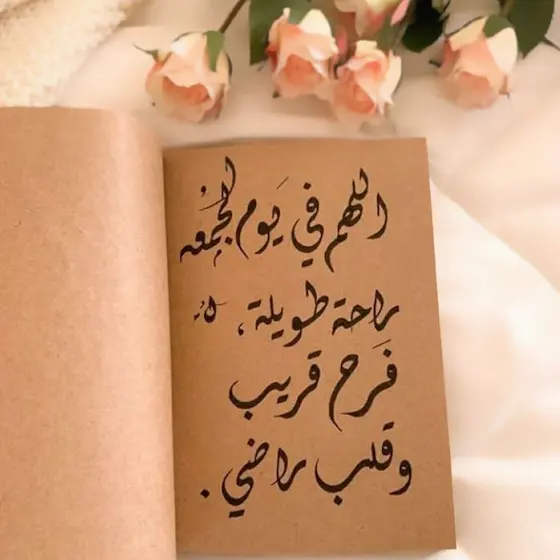 اللهم في يَوم الجُمِعه
راحة طويلة،
فَرح قريب
وقلب راضي.